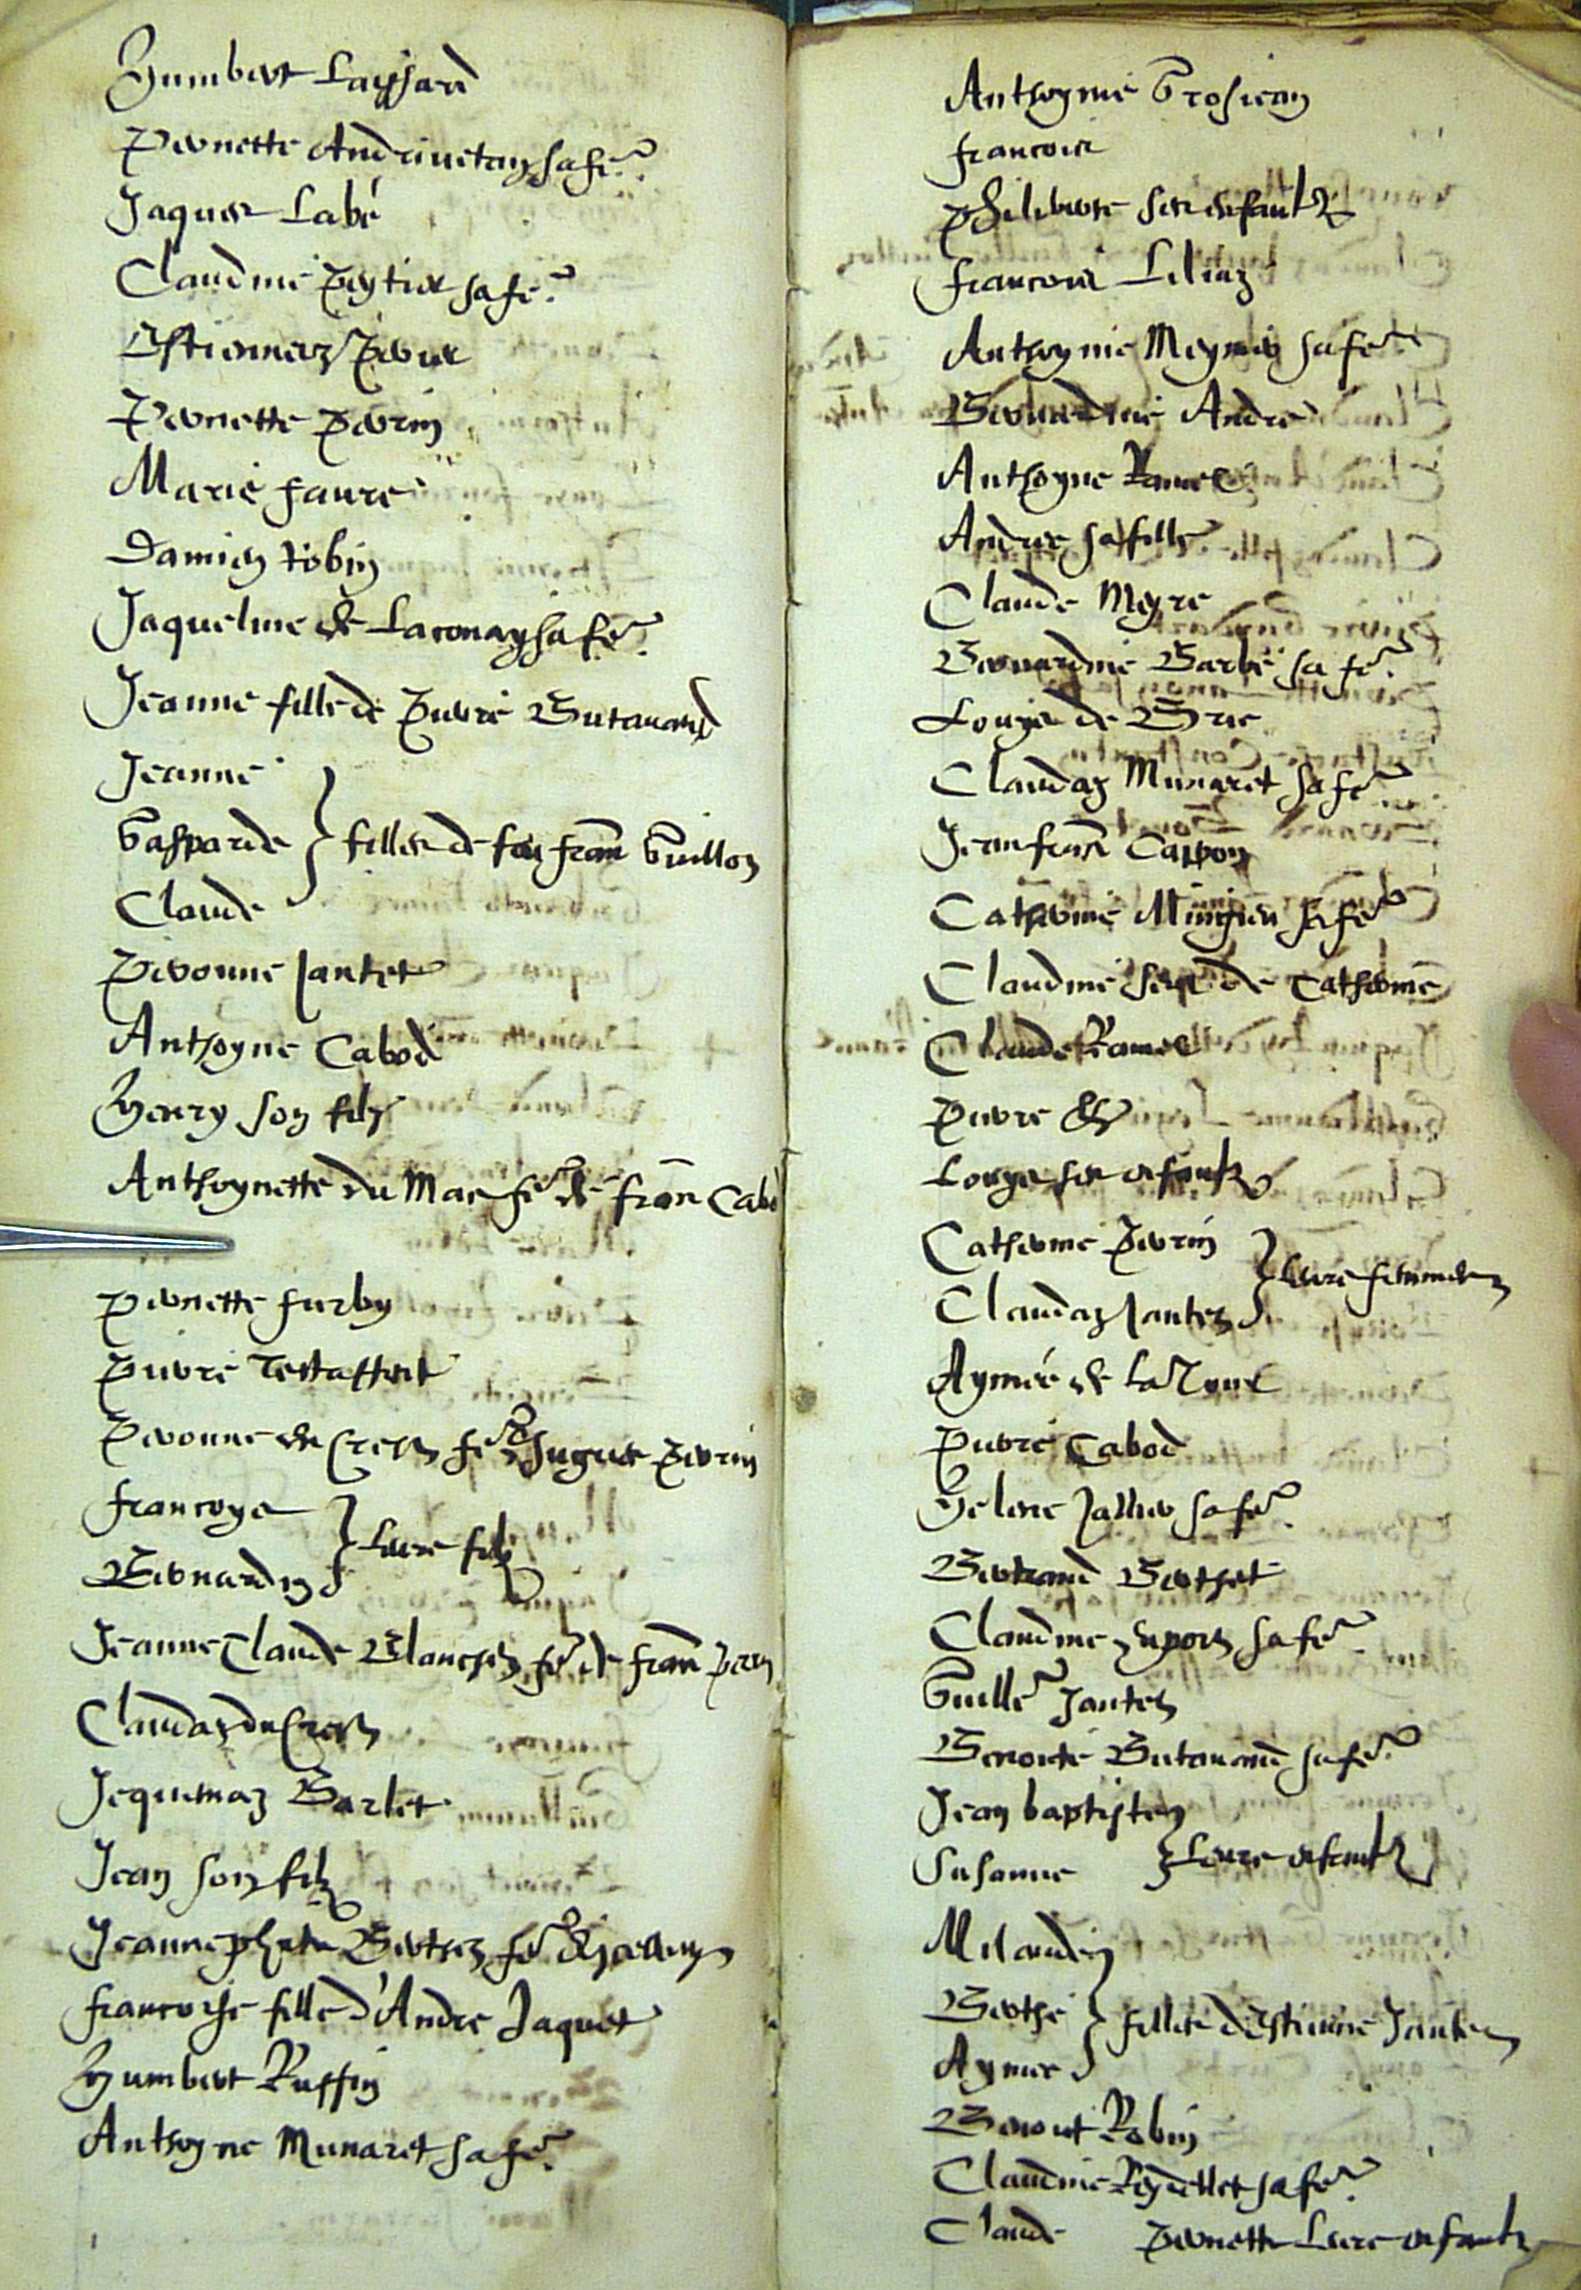 Humbert Layssard
Pernette Andrivetan sa fe.
Jaques Labé
Claudine Peytier sa fe.
Estiennez Perier
Pernette Perrin
Marie Faure
Damien Robin
Jaqueline de Laconay sa fe.
Jeanne fille de Pierre Butavand
Jeanne
Gasparde } filles de feu Fran Guillon
Claude
Pivonne Jantet
Anthoyne Cabod
Henry son filz
Anthoynette du Mas fe de Fran Cabo
Pernette Furby
Pierre Testaffort
Pivonne du Crest fe de Hugues Perrin
Francoys
Bernardin } leurs filz
Jeanne Claude Blanchet fe de Fran Perrin
Claudaz du Crest
Jequemaz Barlet
Jean son filz
Jeanne Bertet fe de
Francoise fille d'Andre Jaquet
Humbert Ruffin
Anthoyne Munaret sa fe.
Anthoynie Grosjean
Francois
Philiberte ses enfantz
Francois Liliaz
Anthoynie Meynier sa fe.
Bernardine Andre
Anthoyne Ramel
Andree sa fille
Claude Meyre
Bernardine Barbé sa fe.
Louys de Brie
Claudaz Munaret sa fe
Jean Fran Cappon
Catherine sa fe
Claudine seur de Catherine
Claude Ramel
Pierre &
Louys ses enfantz
Catherine Perrin
Claudaz Jantet } leurs femmes
Aymée de la
Pierre Cabod
Helene Jallier sa fe.
Bertrand Berthet
Claudine Dupont sa fe.
Guille Jantet
Benoite Butavand sa fe.
Jean Baptiste
Susanne } leurs enfantz
Milandin
Berthe } filles d'Estienne Jantet
Aymee
Benoit Robin
Claudine Reydellet sa fe.
Claude Pernette leurs enfantz